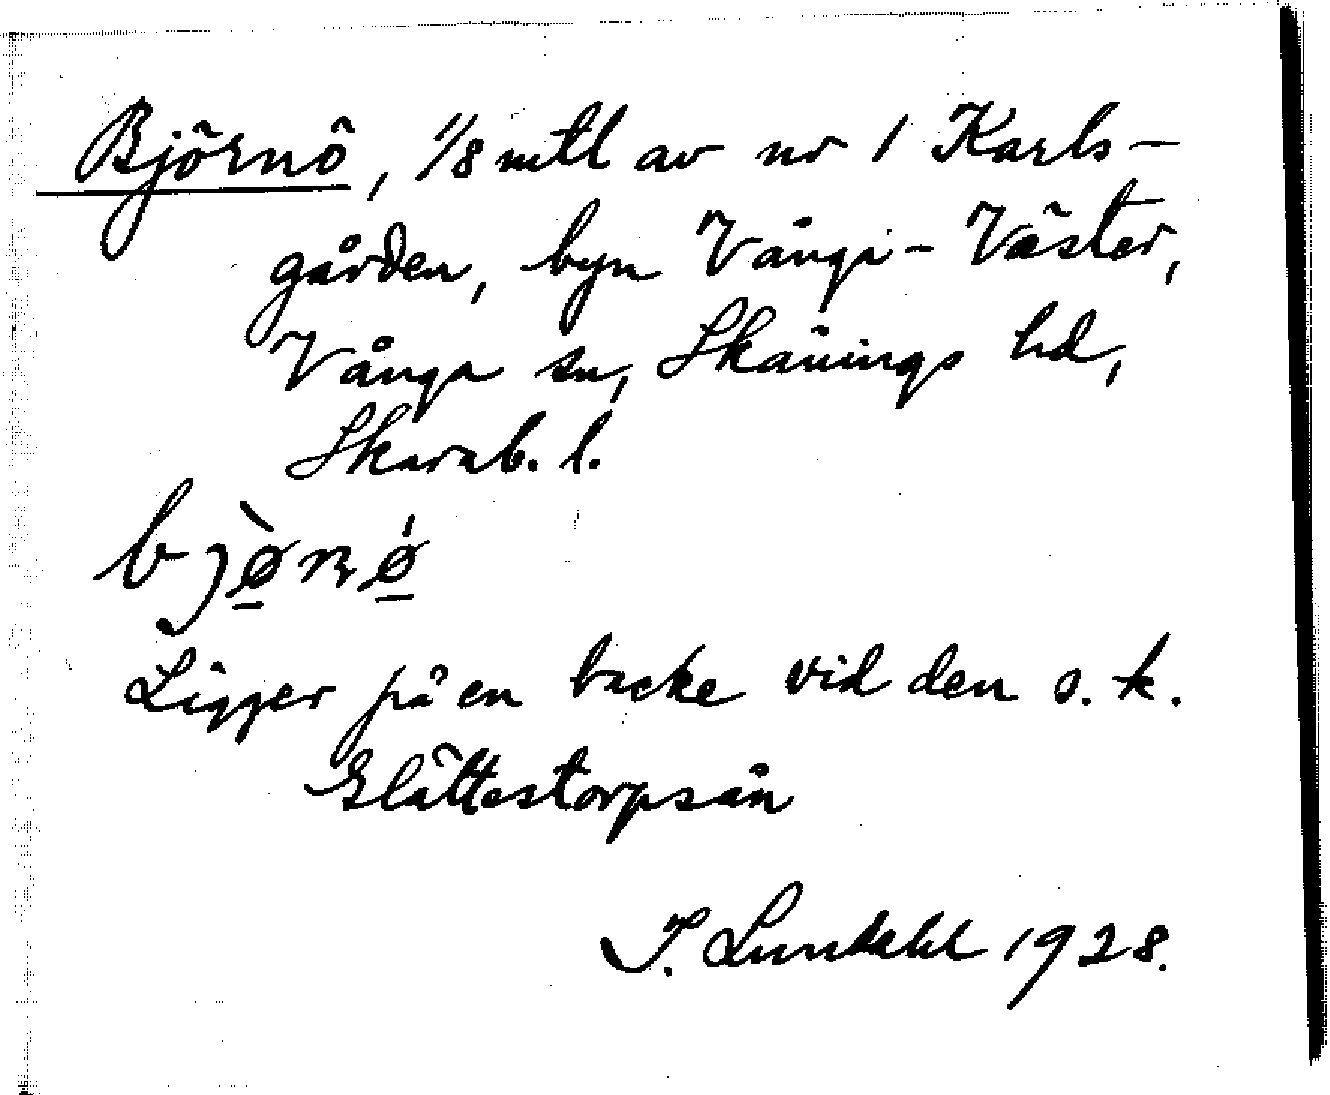 Björnö, 1/8 mtl av nr 1 Karls-
gården, byn Vånga-Väster,
Vånga sn, Skånings hd,
Skarab. l.
bjø̀nǿ
Ligger på en backe vid den s. k.
Slättestorpsån
I. Lundahl 1928.